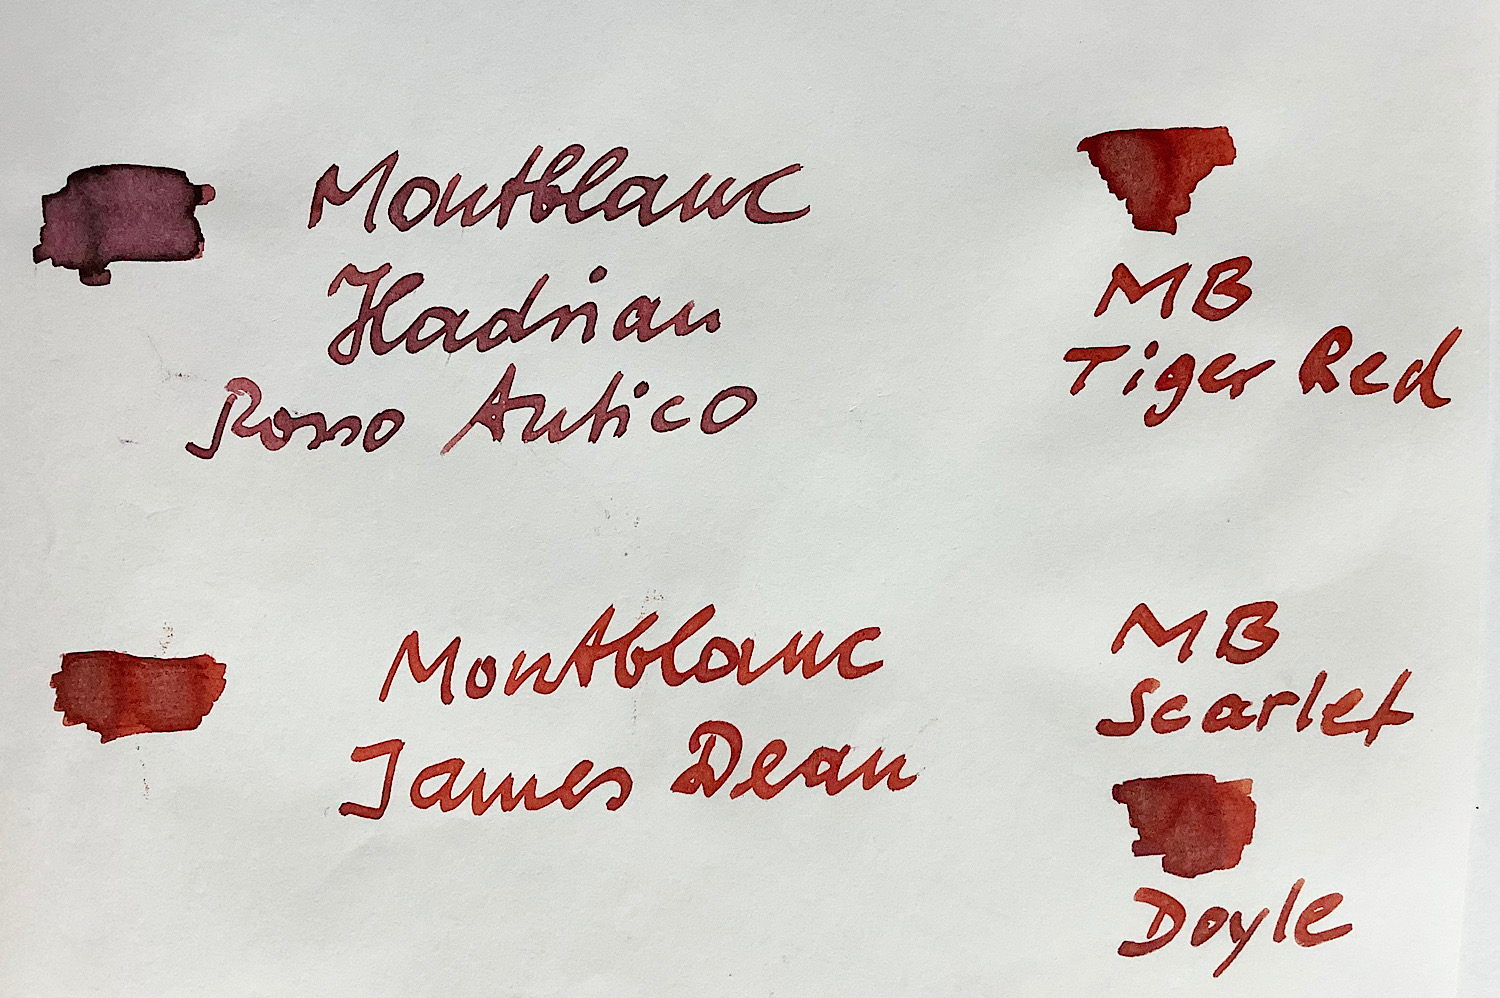 Montblanc
Hadrian
Rosso Antico
MB
Tiger Red
Montblanc
James Dean
MB
Scarlet
Doyle